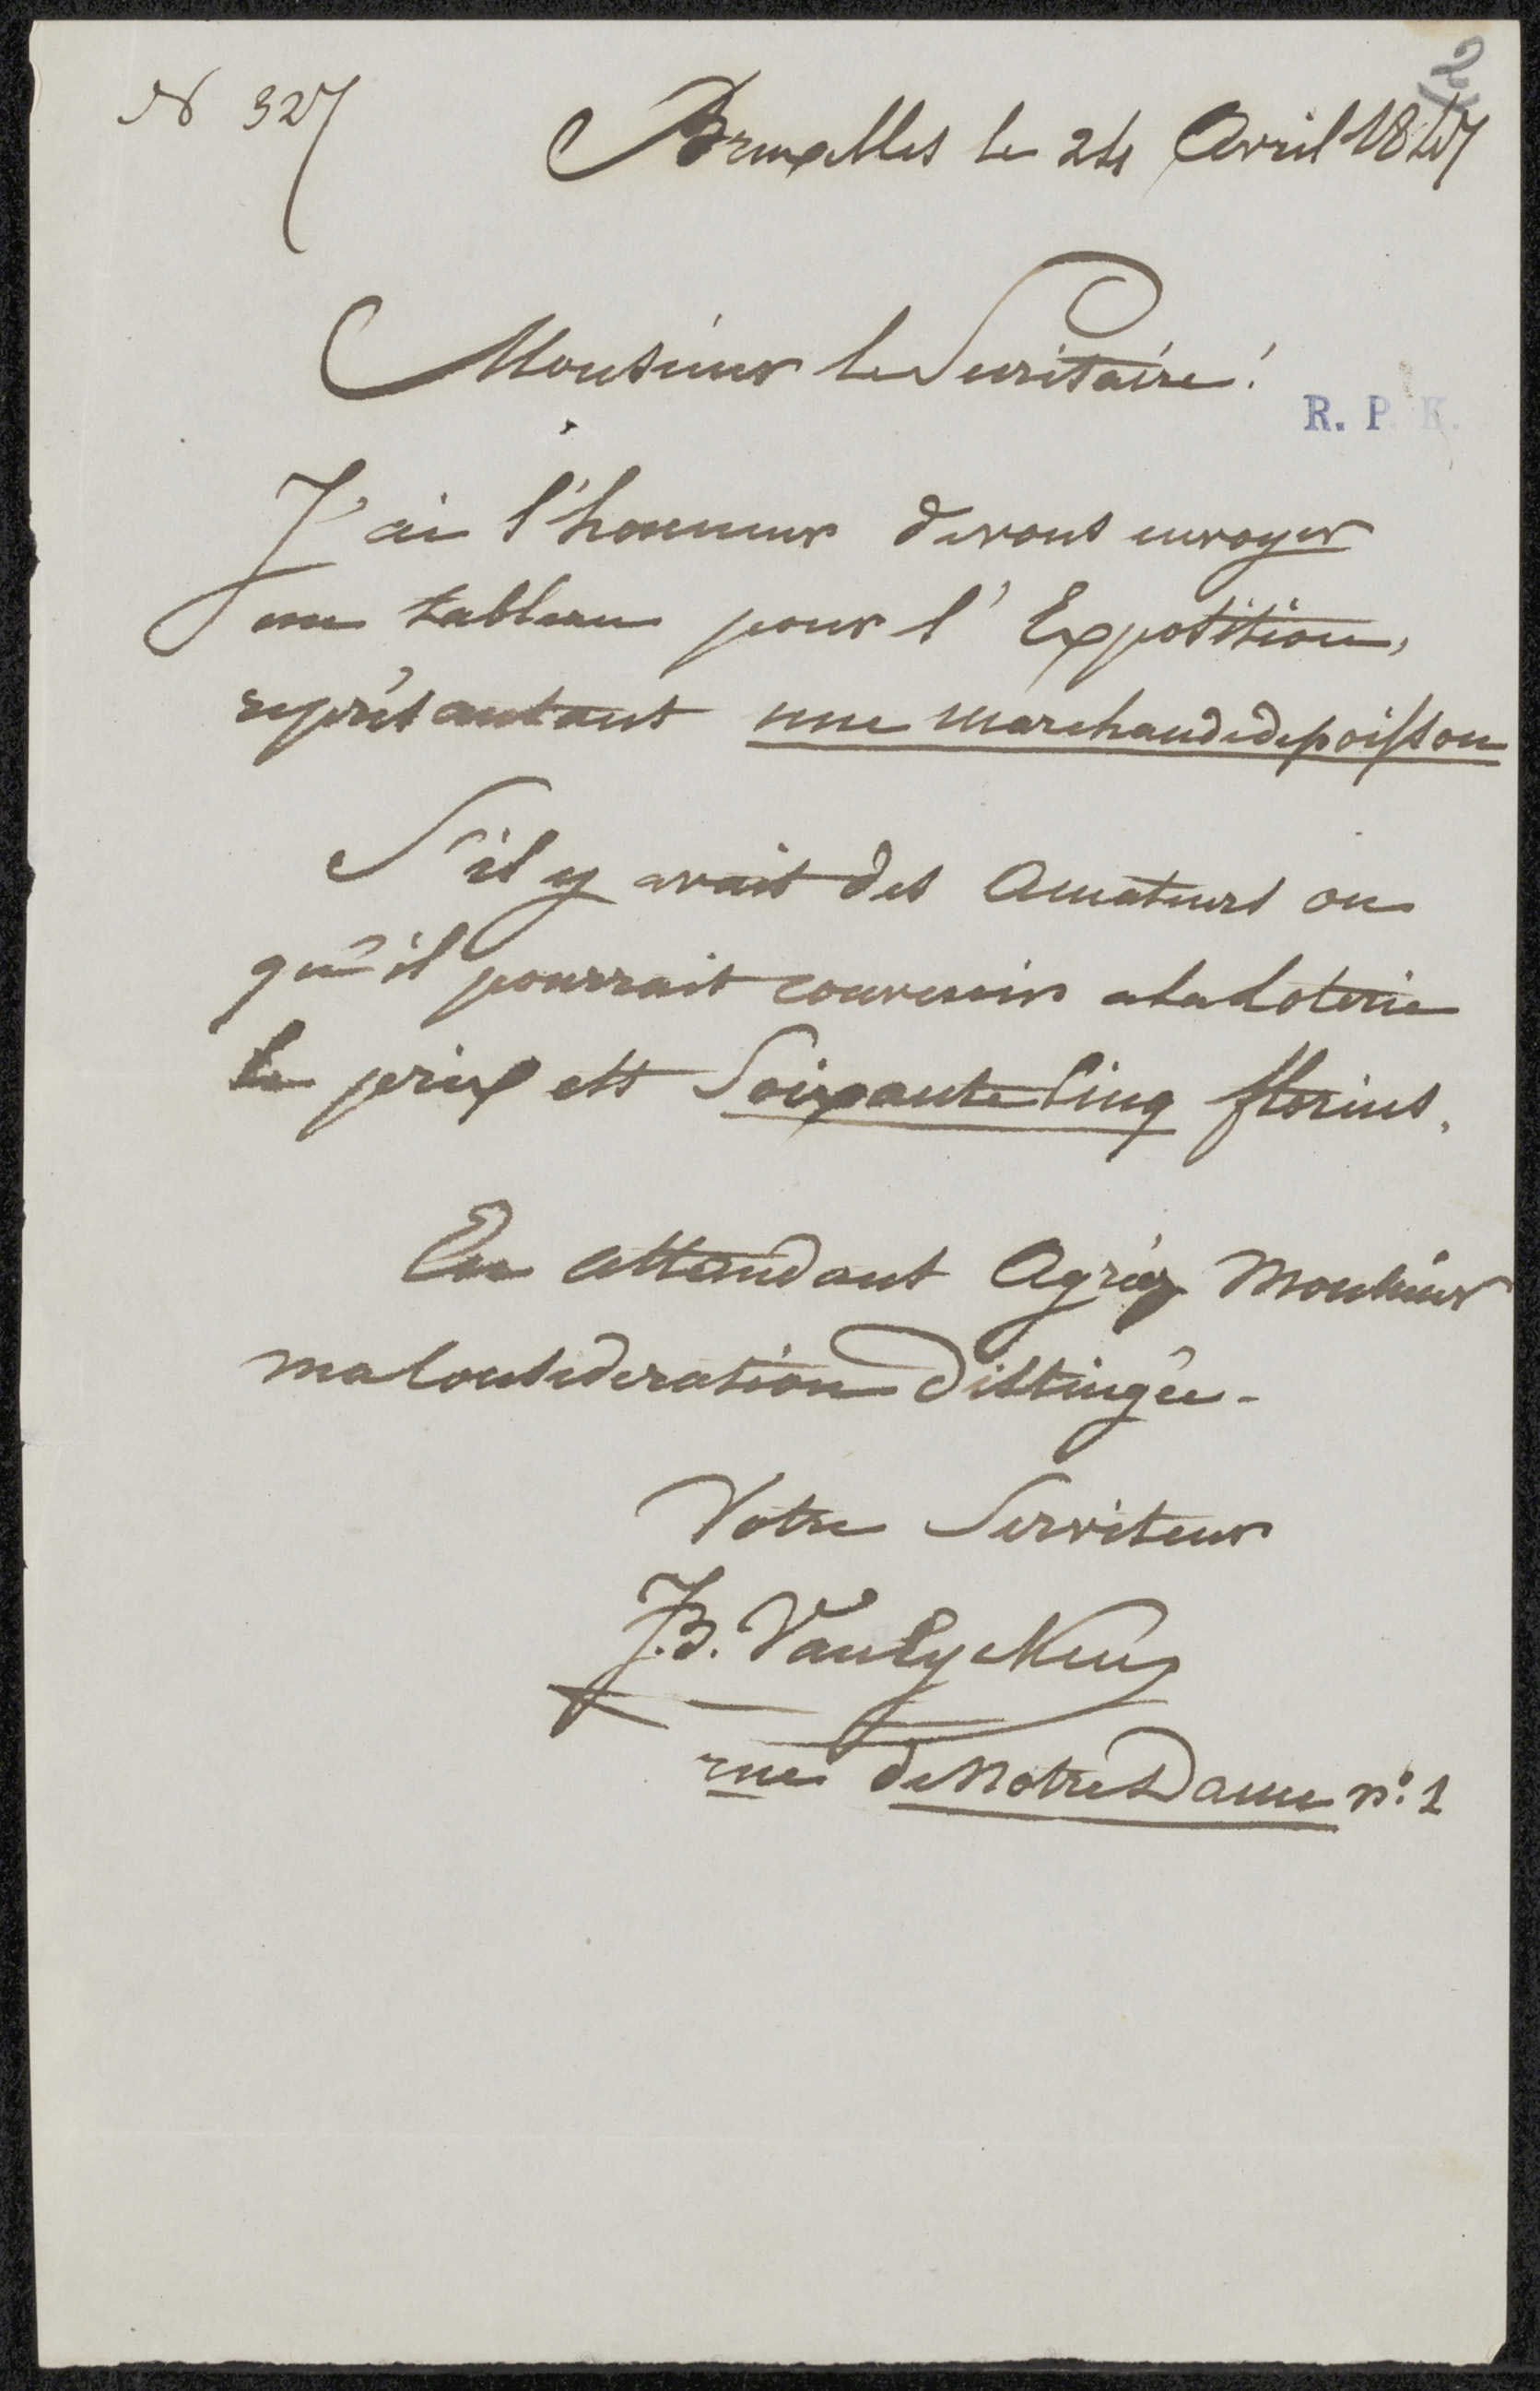 2
N 327
Bruxelles le 24 Avril 1847
Monsieur le Secritaire!
R. P. K.
J'ai l'honneur de vous envoyer
un tableau pour l'Exposition,
représantant une marchande de poisson
S'il y avait des Amateurs ou
qu'il pourrait convenir a la Loterie
le prix est Soixante Cinq florins.
En attendant Agréez Monsieur
ma Consideration Distingée.
Votre Serviteur
J.B. Van Eycken
rue de Notre Dame no. 1